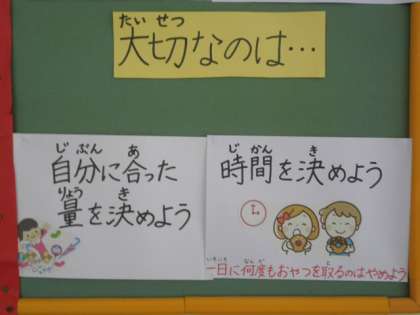 たい せつ
大切なのは…
じ ぶん あ
自分に合った
りょう き
量を決めよう
じ かん き
時間を決めよう
いちにち なん ど と
一日に何度もおやつを取るのはやめよう